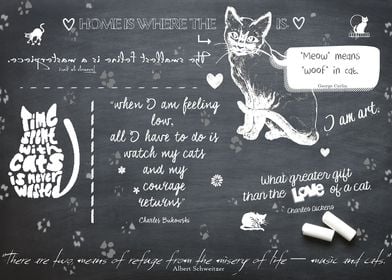 HOME IS WHERE THE IS.
The smallest feline is a masterpiece.
"Meow" means
"woof" in cat.
George Carlin
TIME
SPENT
WITH
CATS
IS NEVER
WASTED
"when I am feeling
low,
all I have to do is
watch my cats
and my
courage
returns"
Charles Bukowski
I am art.
what greater gift
than the Love of a cat.
Charles Dickens
"There are two means of refuge from the misery of life — music and cats
Albert Schweitzer